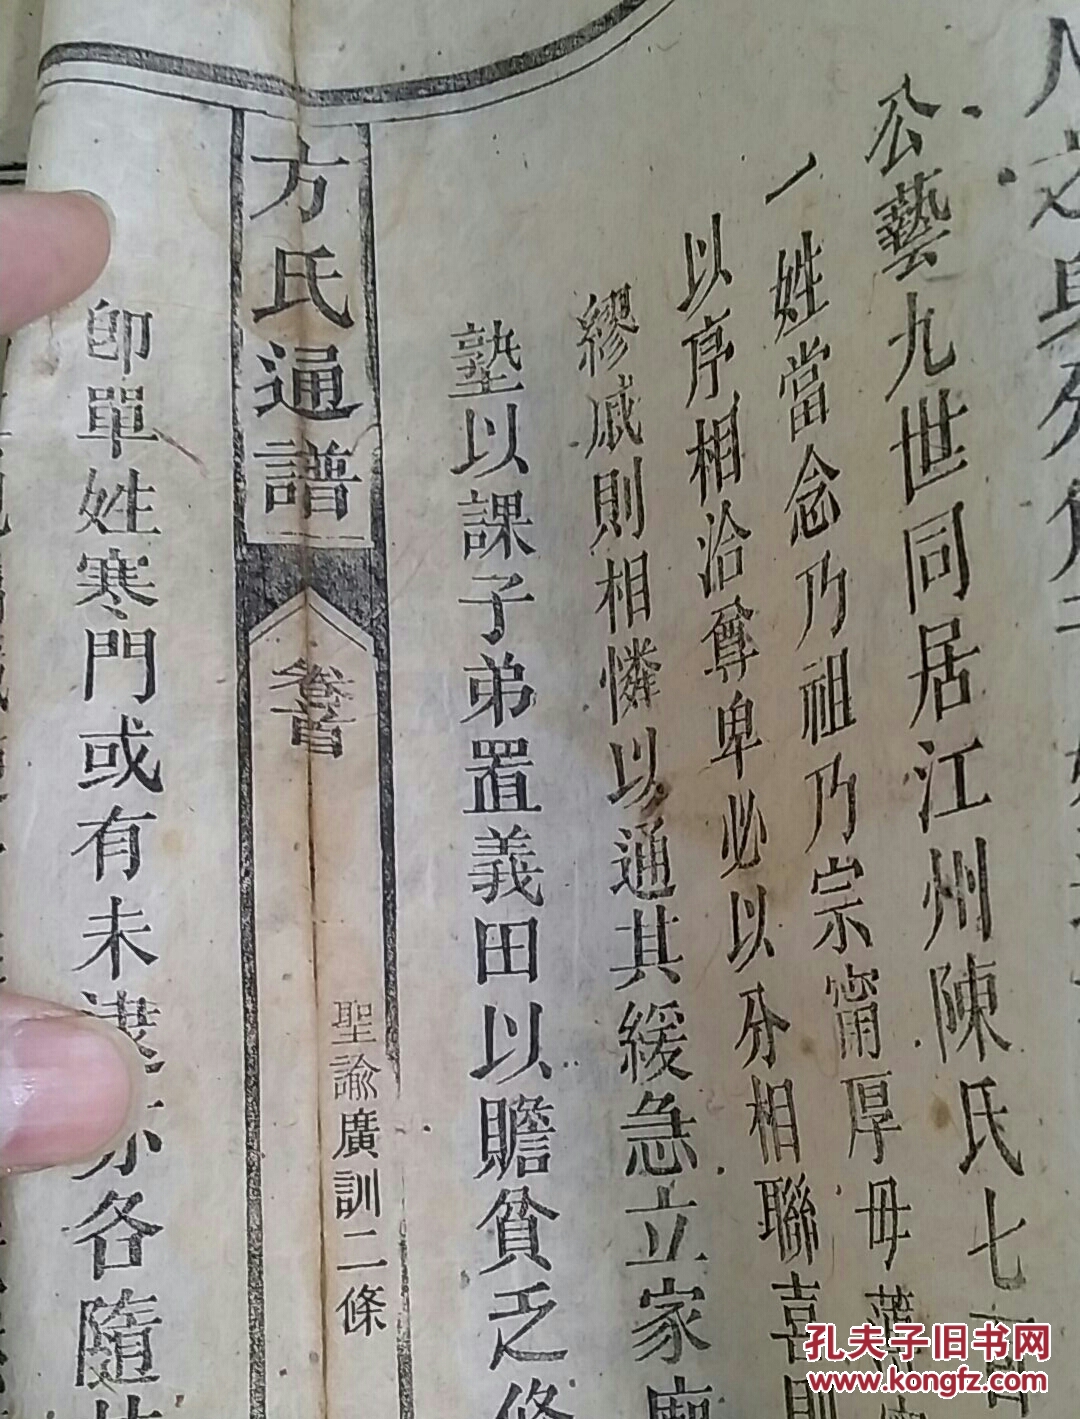 公藝九世同居江州陳氏七百
一姓當念乃祖乃宗甯厚毋薄
以序相洽尊卑必以分相聯喜則
繆戚則相憐以通其緩急立家廟
塾以課子弟置義田以贍貧乏修
方氏通譜
卷首
聖諭廣訓二條
卽單姓寒門或有未逮亦各隨其
孔夫子旧书网
www.kongfz.com